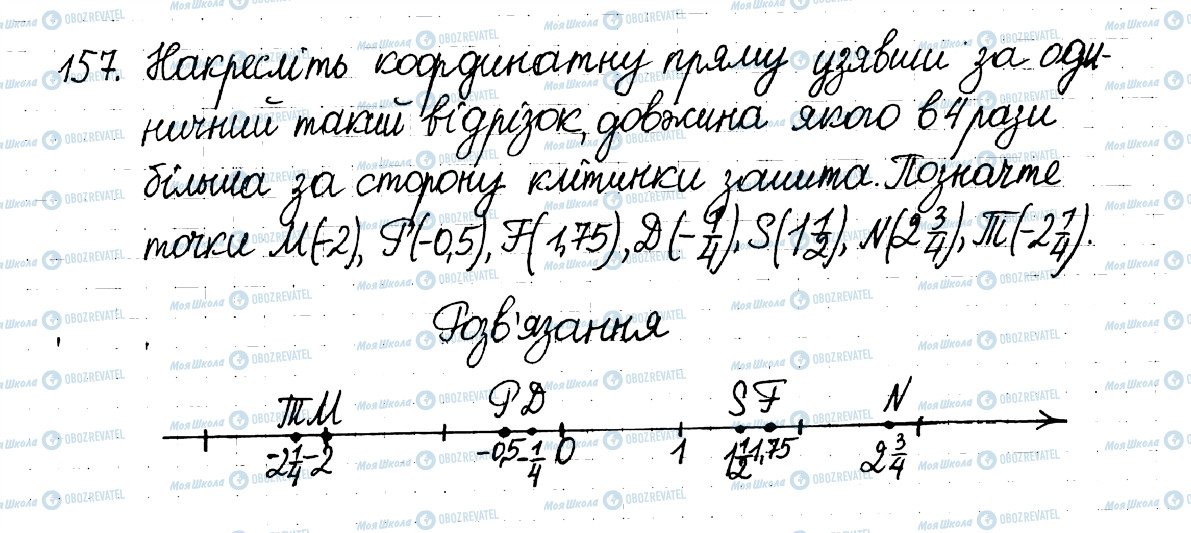 157. Накресліть координатну пряму узявши за оди-
ничний такий відрізок, довжина якого в 4 рази
більша за сторону клітинки зошита. Позначте
точки M(-2), P(-0,5), F(1,75), D(-1/4), S(1 1/2), N(2 3/4), T(-2 1/4).
Розв'язання
T M P D S F N
-2 1/4 -2 -0,5 -1/4 0 1 1 1/2 1,75 2 3/4